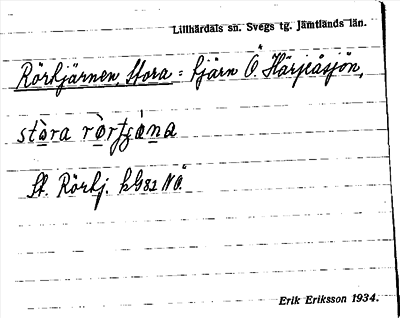 Lillhärdals sn. Svegs tg. Jämtlands län.
Rörtjärnen, Stora = tjärn Ö. Härjeåsjön,
stòra rö̀rtjǿna
St. Rörtj. kG81 NÖ.
Erik Eriksson 1934.